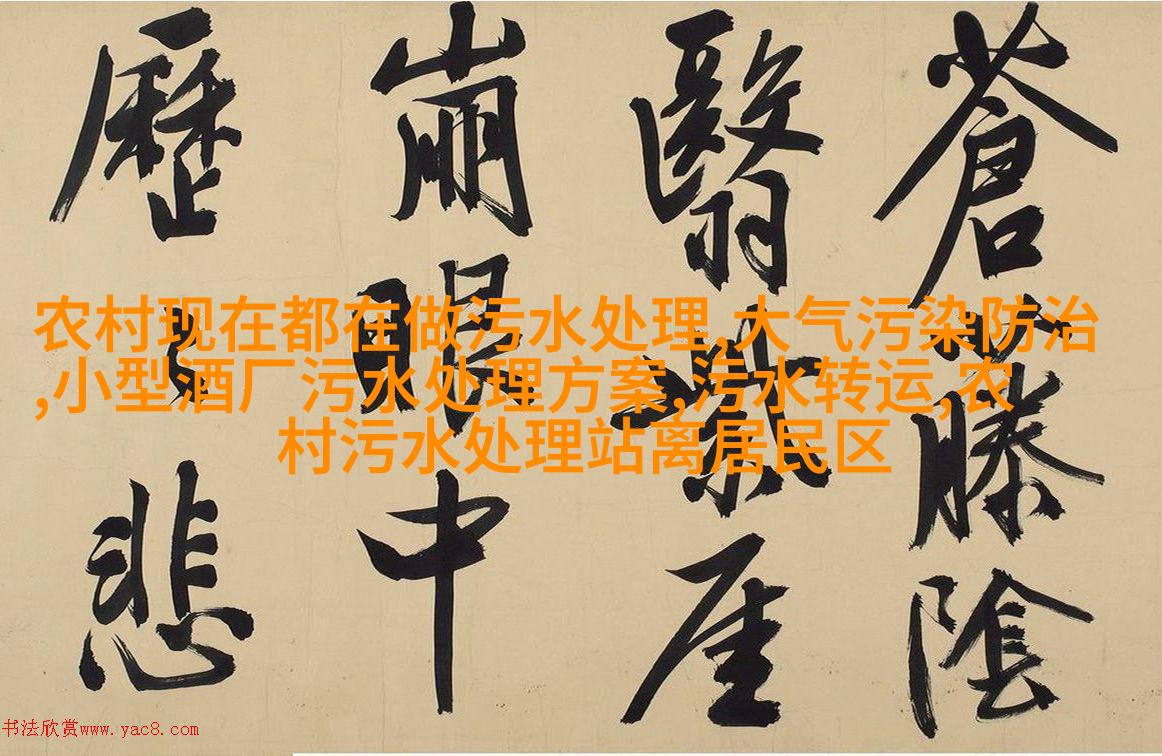 蒼藤陰
翳紫厓
崩中
歷悲
农村现在都在做污水处理,大气污染防治
,小型酒厂污水处理方案,污水转运,农
村污水处理站离居民区
书法欣赏www.yac8.com